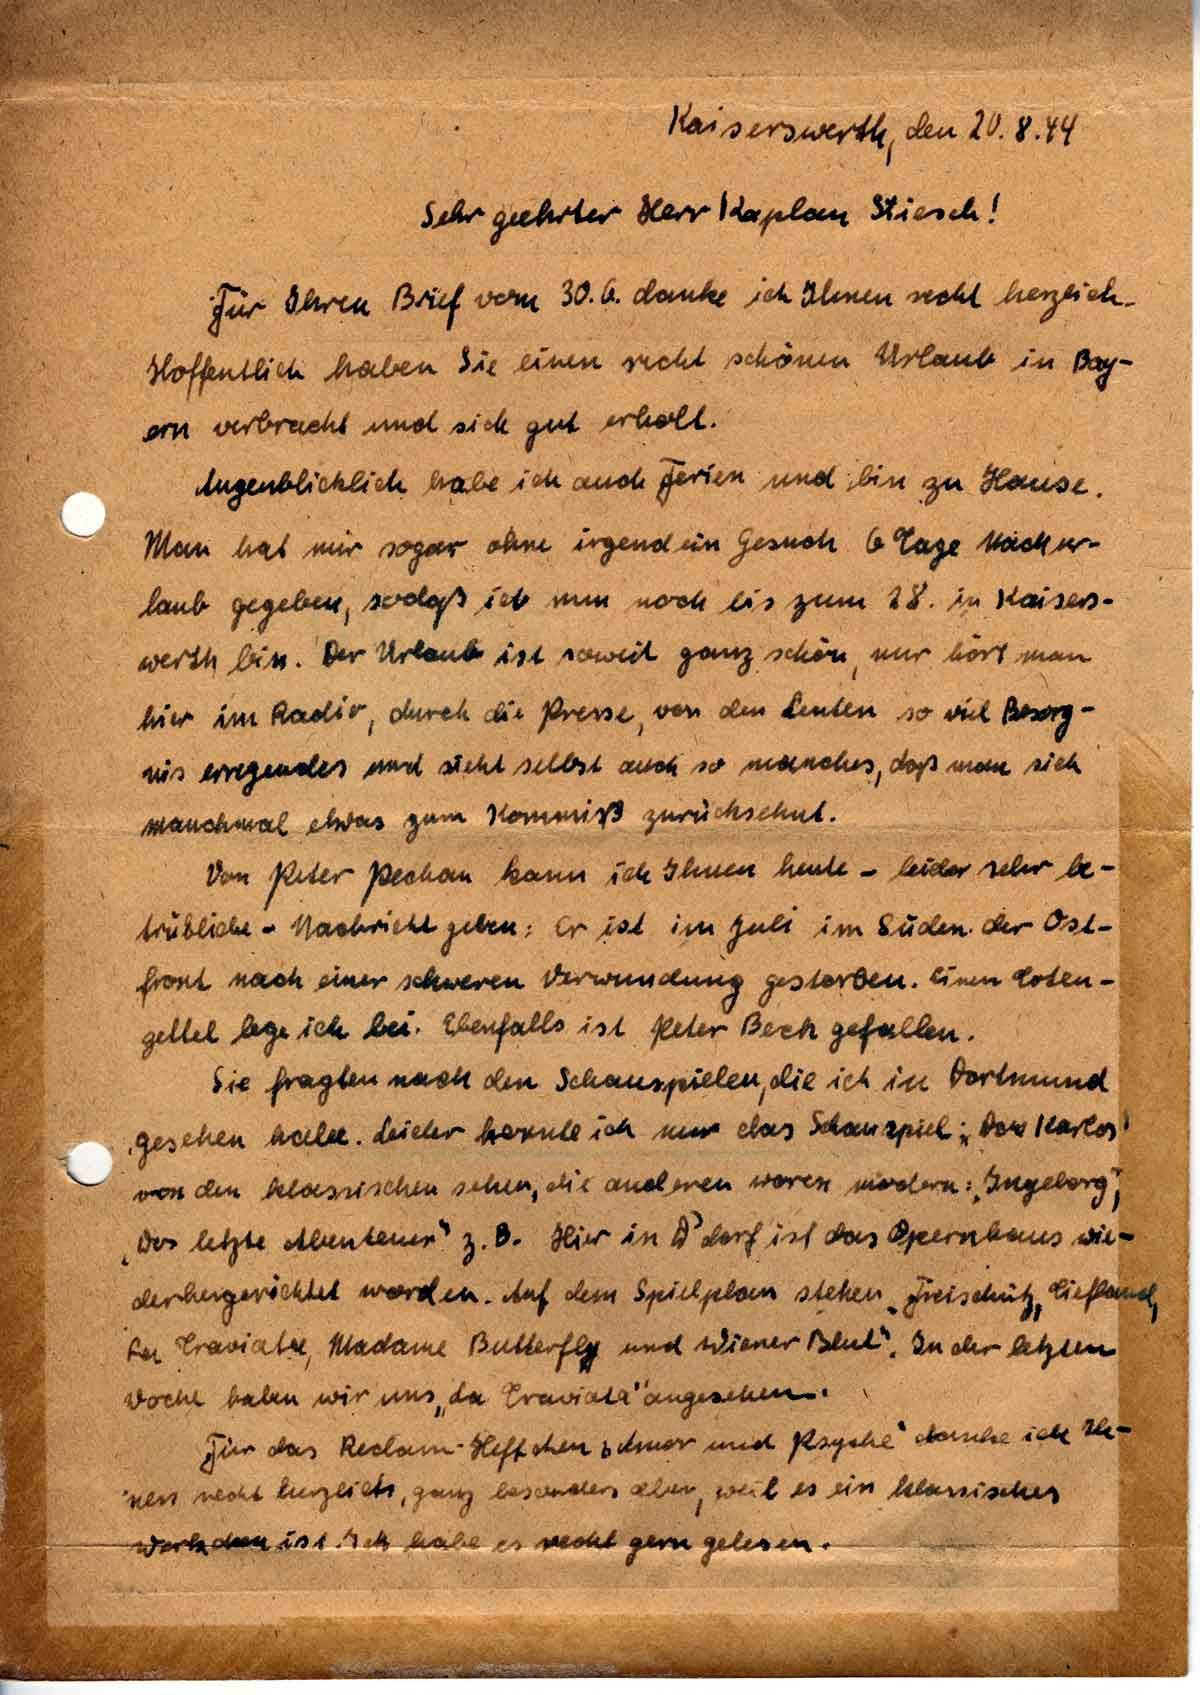 Kaiserswerth, den 20.8.44
Sehr geehrter Herr Kaplan Stiesch!
Für Ihren Brief vom 30.6. danke ich Ihnen recht herzlich.
Hoffentlich haben Sie einen recht schönen Urlaub in Bay-
ern verbracht und sich gut erholt.
Augenblicklich habe ich auch Ferien und bin zu Hause.
Man hat mir sogar ohne irgendein Gesuch 6 Tage Nachur-
laub gegeben, sodaß ich nun noch bis zum 28. in Kaisers-
werth bin. Der Urlaub ist soweit ganz schön, nur hört man
hier im Radio, durch die Presse, von den Leuten so viel Besorg-
nis erregendes und sieht selbst auch so manches, daß man sich
manchmal etwas zum Kommiß zurücksehnt.
Von Peter Pechan kann ich Ihnen heute - leider sehr be-
trübliche - Nachricht geben: Er ist im Juli im Süden der Ost-
front nach einer schweren Verwundung gestorben. Einen Toten-
zettel lege ich bei. Ebenfalls ist Peter Beck gefallen.
Sie fragten nach den Schauspielen, die ich in Dortmund
gesehen habe. Leider konnte ich nur das Schauspiel: „Don Karlos“
von den klassischen sehen, die anderen waren modern: „Ingeborg“,
„Das letzte Abenteuer“ z.B. Hier in D'dorf ist das Opernhaus wie-
derhergerichtet worden. Auf dem Spielplan stehen „Freischütz, Tiefland,
La Traviata, Madame Butterfly und Wiener Blut“. In der letzten
Woche haben wir uns „La Traviata“ angesehen.
Für das Reclam-Heftchen „Amor und Psyche“ danke ich Ih-
nen recht herzlich, ganz besonders aber, weil es ein klassisches
Werkchen ist. Ich habe es recht gern gelesen.